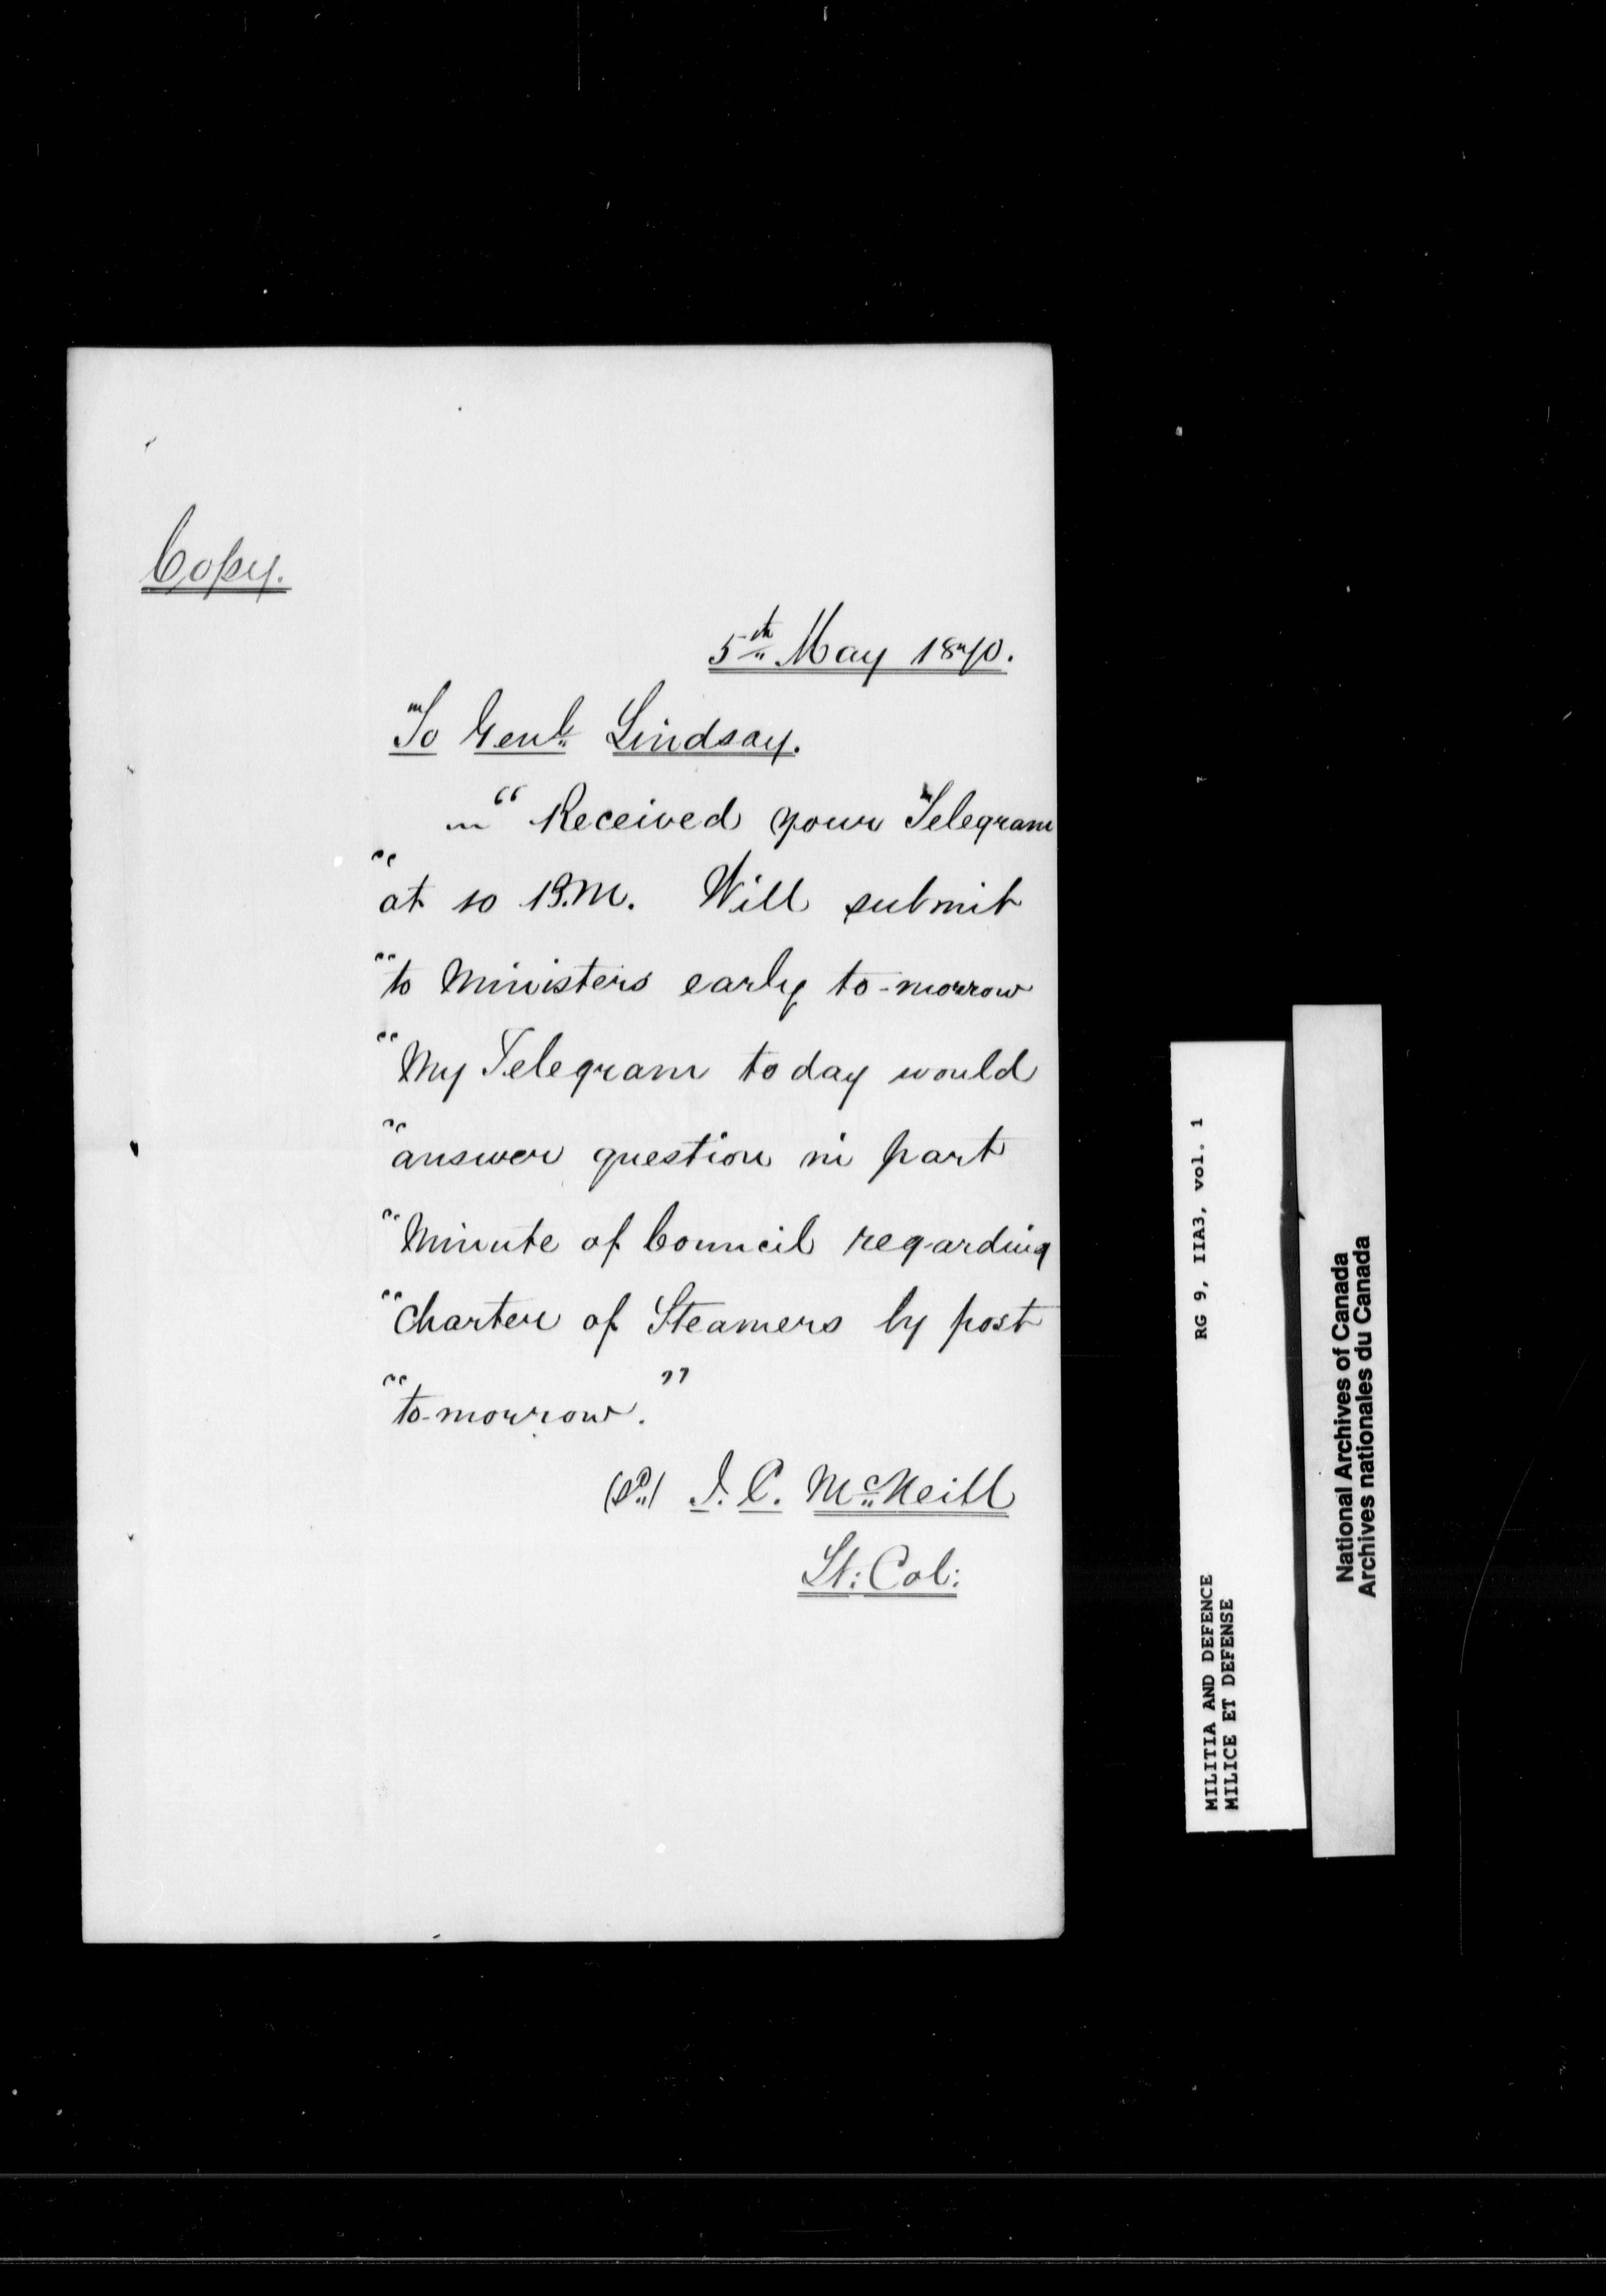 Copy.
5th May 1870.
To Genl. Lindsay.
" Received your Telegram
"at 10 P.M. Will submit
"to Ministers early to-morrow
"My Telegram to day would
"answer question in part
"Minute of Council regarding
"Charter of Steamers by post
"to-morrow."
(Sd) J. C. McNeill
Lt: Col:
MILITIA AND DEFENCE RG 9, IIA3, vol. 1
MILICE ET DEFENSE
National Archives of Canada
Archives nationales du Canada